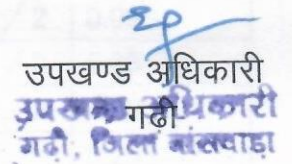 उपखण्ड अधिकारी
गढी
उपखण्ड अधिकारी
गढी, जिला बांसवाडा